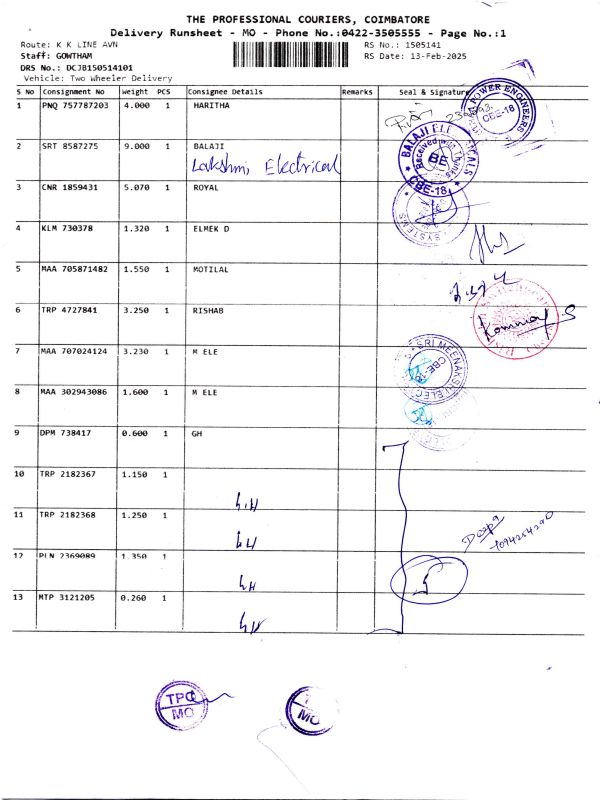 THE PROFESSIONAL COURIERS, COIMBATORE
Delivery Runsheet - MO - Phone No.:0422-3505555 - Page No.:1
Route: K K LINE AVN RS No.: 1505141
Staff: GOWTHAM RS Date: 13-Feb-2025
DRS No.: DCJB150514101
Vehicle: Two Wheeler Delivery
S No Consignment No Weight PCS Consignee Details Remarks Seal & Signature
1 PNQ 757787203 4.000 1 HARITHA
POWER ENGINEERS
CBE-18
2 SRT 8587275 9.000 1 BALAJI
Lakshmi Electrical
BALAJI ELECTRICALS
Received with Thanks
BE
CBE-18
3 CNR 1859431 5.070 1 ROYAL
SYSTEMS
4 KLM 730378 1.320 1 ELMEK D
5 MAA 705871482 1.550 1 MOTILAL
6 TRP 4727841 3.250 1 RISHAB
7 MAA 707024124 3.230 1 M ELE
SRI MEENAKSHI ELEC
CBE-18
8 MAA 302943086 1.600 1 M ELE
9 DPM 738417 0.600 1 GH
10 TRP 2182367 1.150 1
GH
11 TRP 2182368 1.250 1
GH
12 PLN 2369089 1.350 1
GH
13 MTP 3121205 0.260 1
GH
TPC
MO
MO